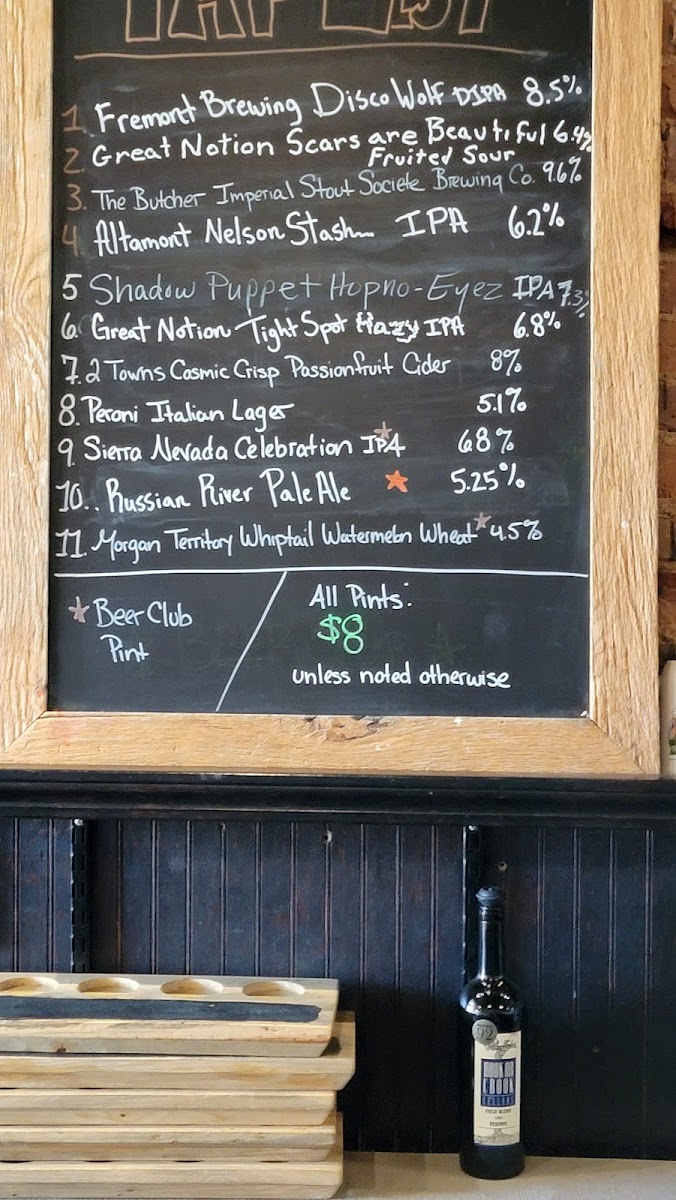 TAP LIST
1. Fremont Brewing Disco Wolf DIPA 8.5%
2. Great Notion Scars are Beautiful 6.4%
Fruited Sour
3. The Butcher Imperial Stout Societe Brewing Co. 9.6%
4 Altamont Nelson Stash IPA 6.2%
5 Shadow Puppet Hopno-Eyez IPA 7.3%
6. Great Notion-Tight Spot Hazy IPA 6.8%
7. 2 Towns Cosmic Crisp Passionfruit Cider 8%
8. Peroni Italian Lager 5.1%
9. Sierra Nevada Celebration IPA 6.8%
10.. Russian River Pale Ale 5.25%
11. Morgan Territory Whiptail Watermelon Wheat 4.5%
Beer Club
Pint
All Pints:
$8
unless noted otherwise
92
HOOK OR
CROOK
CELLARS
FIELD BLEND
RESERVE